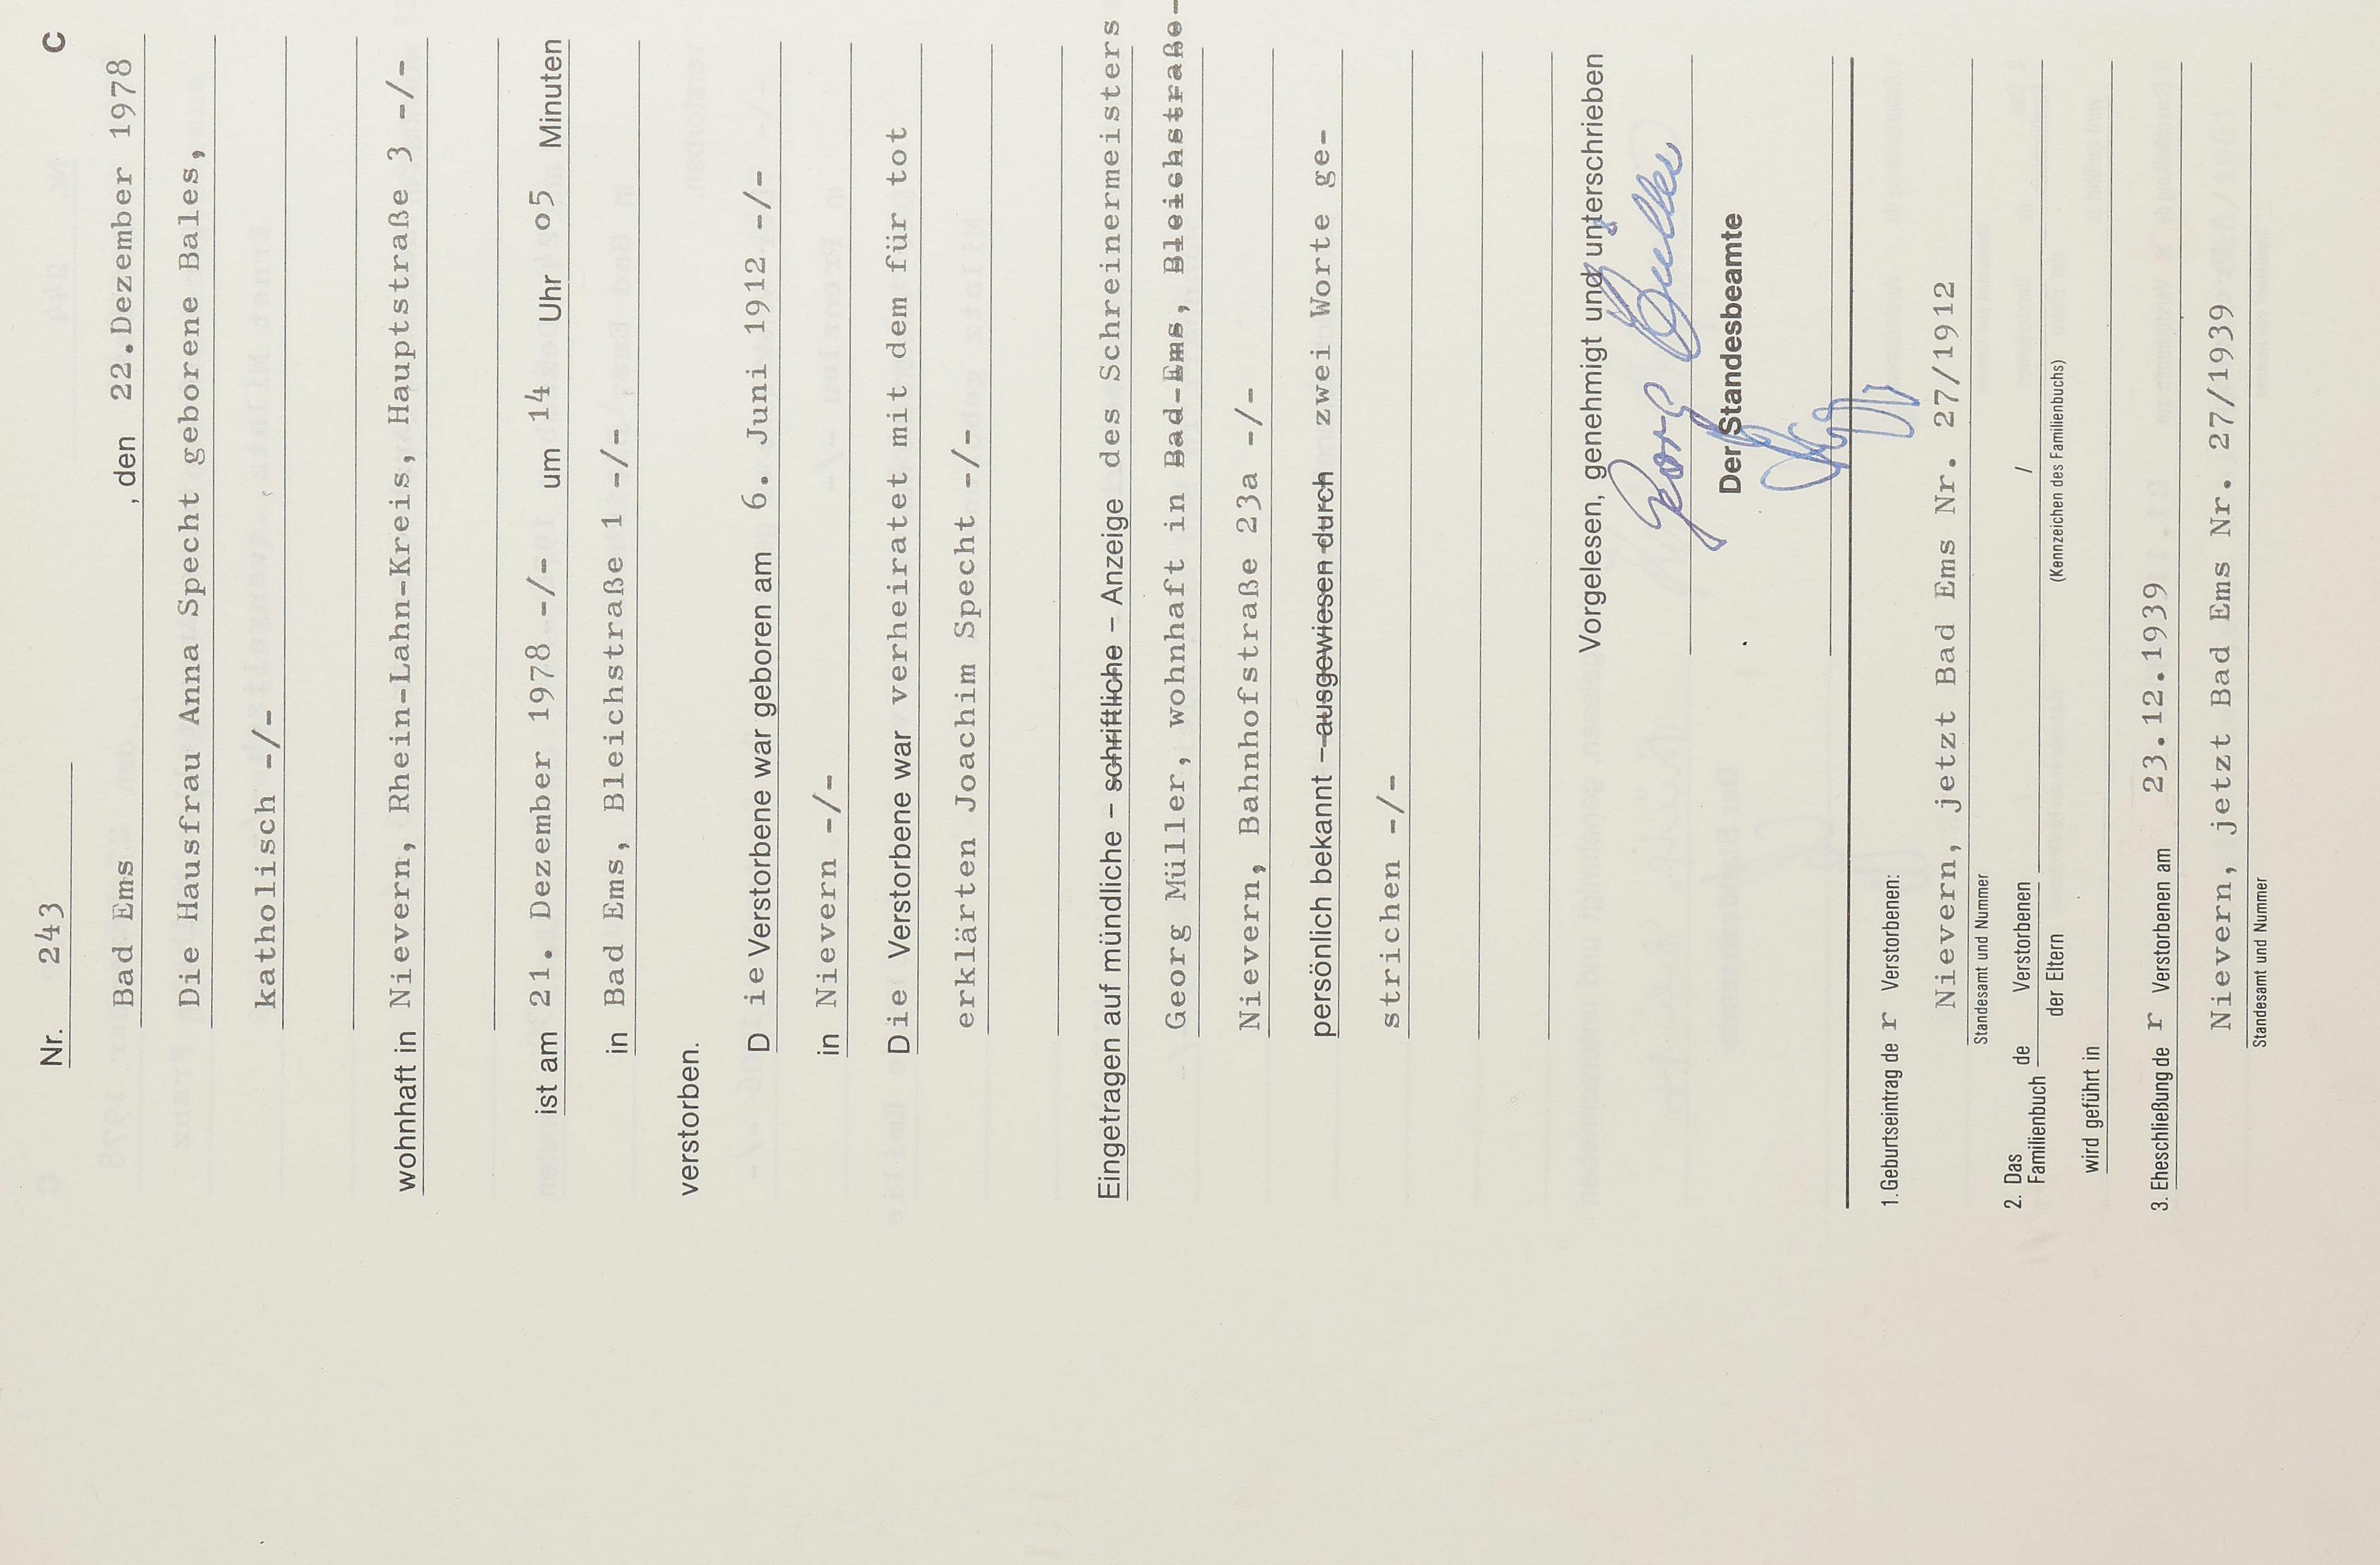 Nr. 243 C
Bad Ems , den 22.Dezember 1978
Die Hausfrau Anna Specht geborene Bales,
katholisch -/-
wohnhaft in Nievern, Rhein-Lahn-Kreis, Hauptstraße 3 -/-
ist am 21. Dezember 1978 -/- um 14 Uhr o5 Minuten
in Bad Ems, Bleichstraße 1 -/-
verstorben.
D ie Verstorbene war geboren am 6. Juni 1912 -/-
in Nievern -/-
Die Verstorbene war verheiratet mit dem für tot
erklärten Joachim Specht -/-
Eingetragen auf mündliche – schriftliche – Anzeige des Schreinermeisters
Georg Müller, wohnhaft in Bad-Ems, Bleichstraße-
Nievern, Bahnhofstraße 23a -/-
persönlich bekannt – ausgewiesen durch zwei Worte ge-
strichen -/-
Vorgelesen, genehmigt und unterschrieben
Georg Müller
Der Standesbeamte
1.Geburtseintrag de r Verstorbenen:
Nievern, jetzt Bad Ems Nr. 27/1912
Standesamt und Nummer
2. Das Familienbuch de Verstorbenen / der Eltern
(Kennzeichen des Familienbuchs)
wird geführt in
3. Eheschließung de r Verstorbenen am 23.12.1939
Nievern, jetzt Bad Ems Nr. 27/1939
Standesamt und Nummer